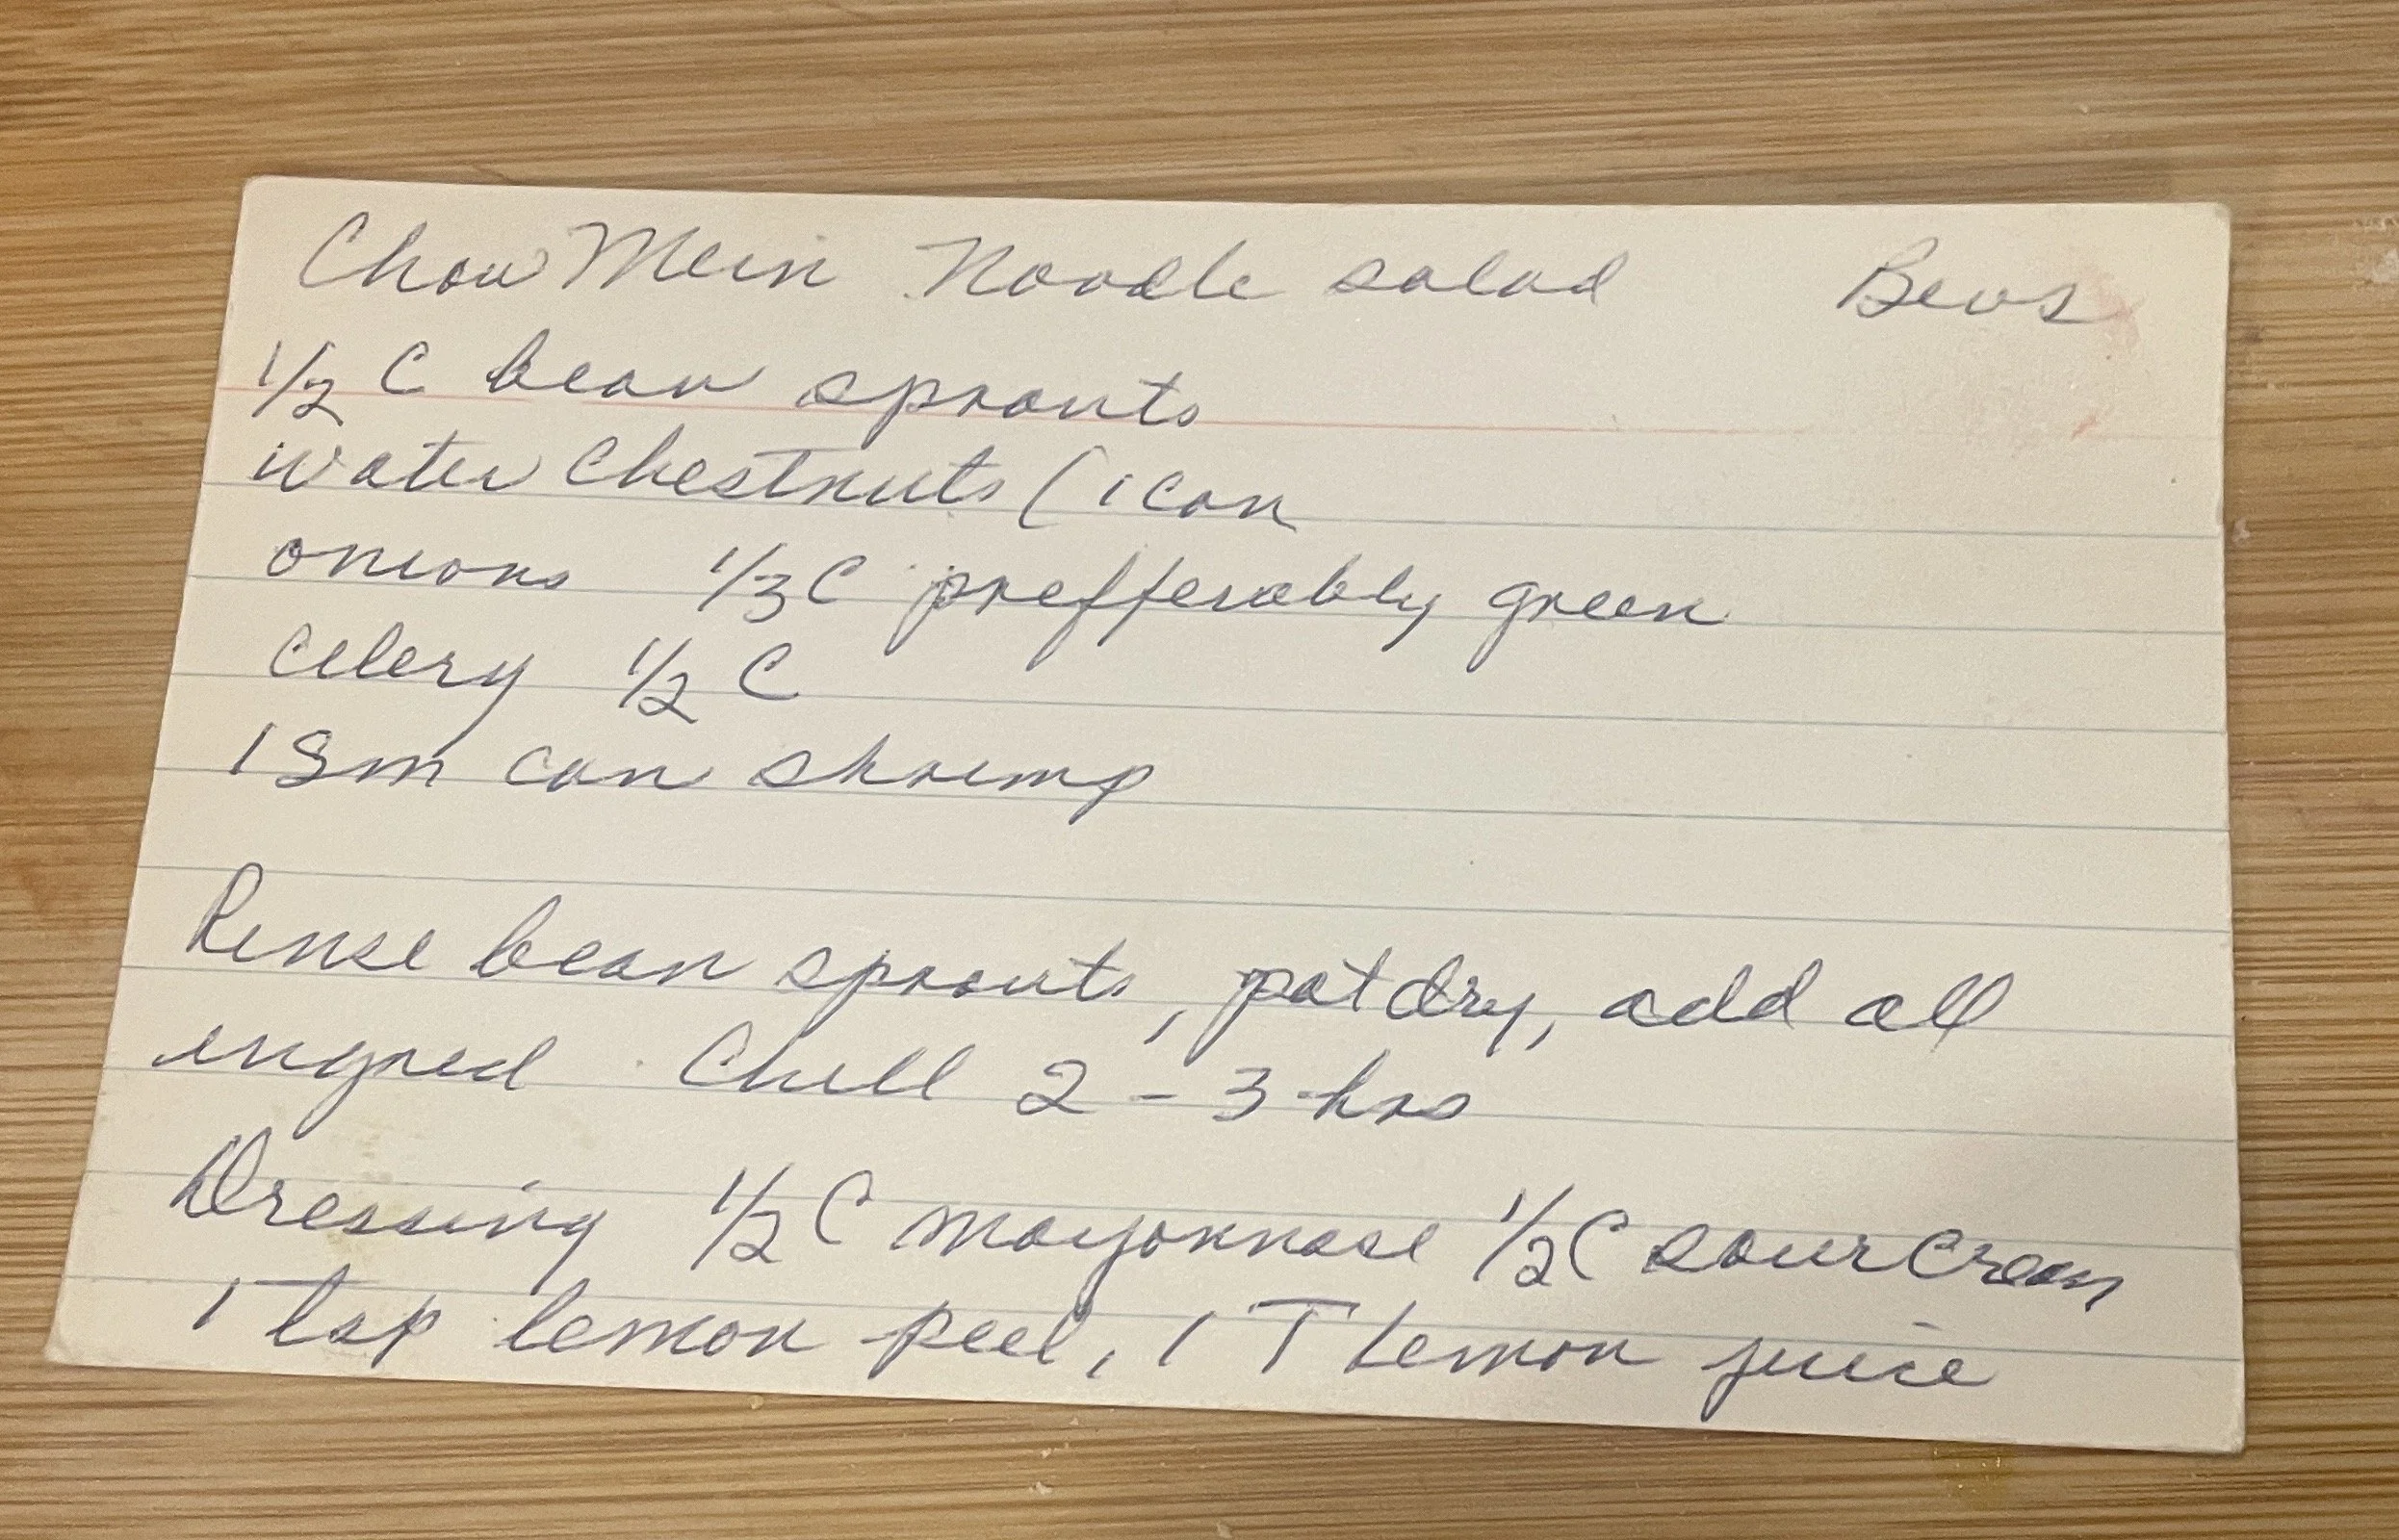 Chow Mein Noodle salad Bevs
1/2 C bean sprouts
water Chestnuts (1 can
onions 1/3 C prefferably green
celery 1/2 C
1 Sm can shrimp
Rinse bean sprouts, pat dry, add all
ingred. Chill 2-3 hrs
Dressing 1/2 C mayonnase 1/2 C sour Cream
1 tsp lemon peel, 1 T Lemon juice